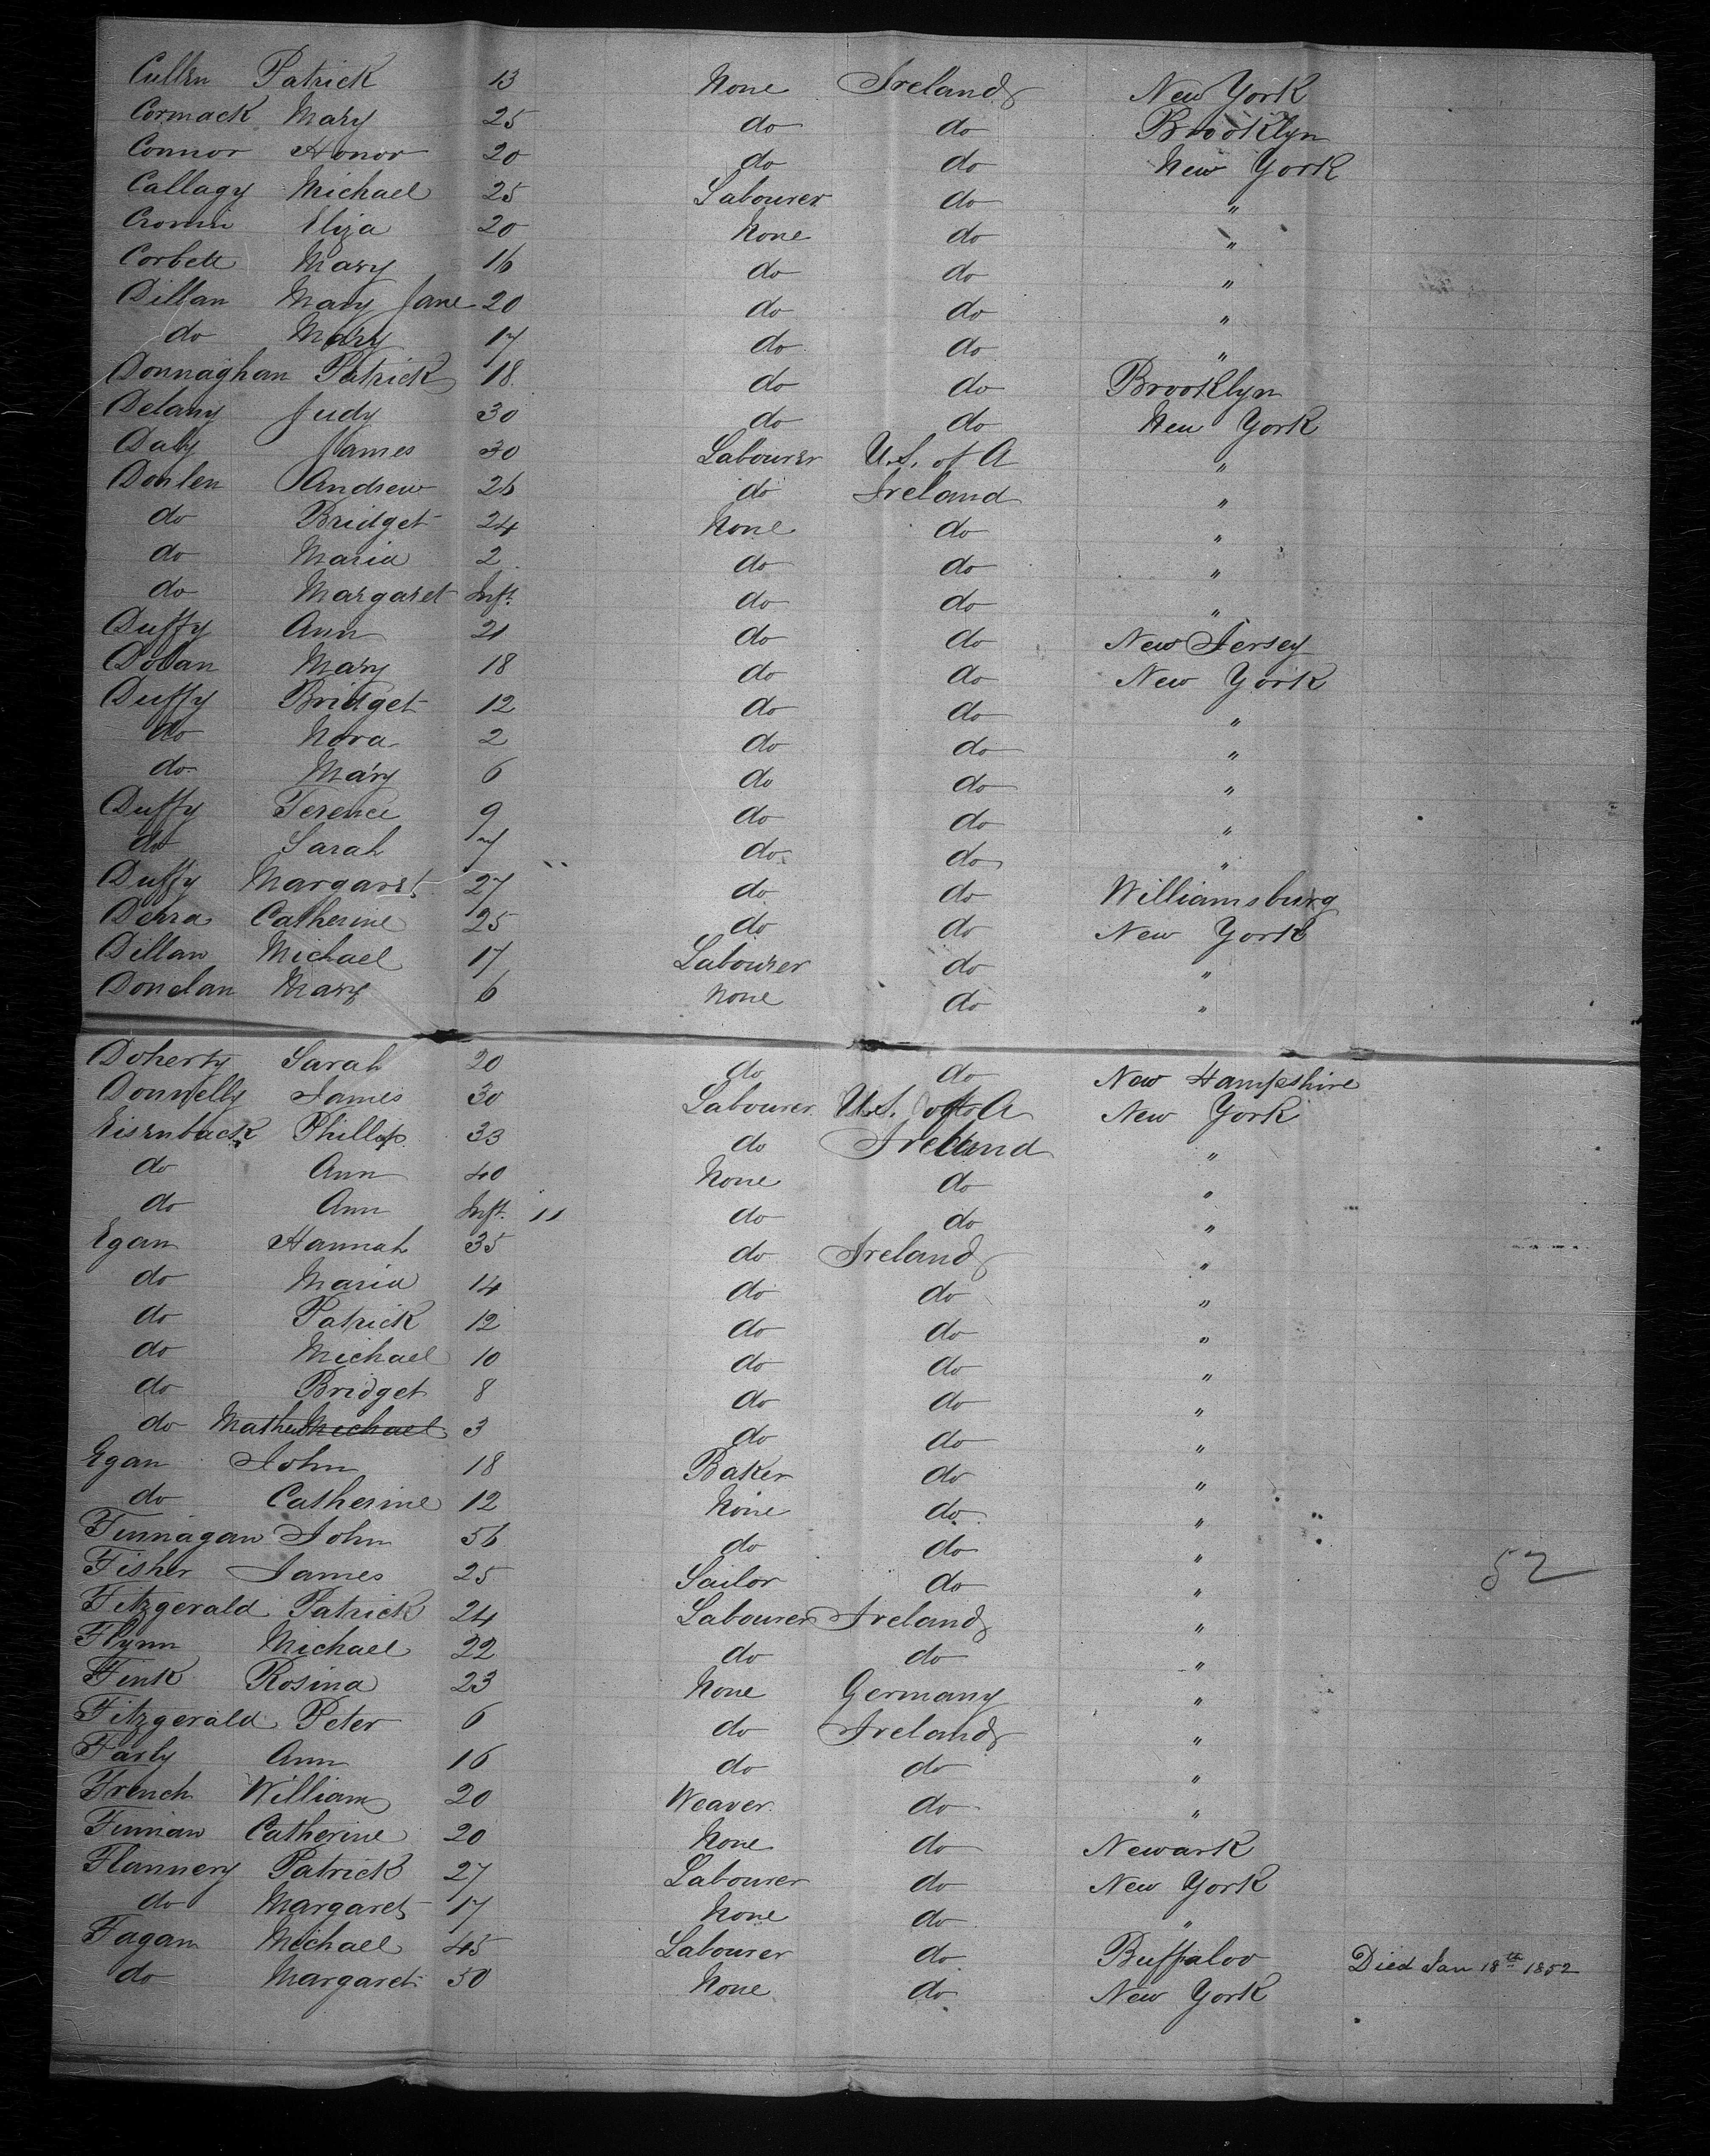 Cullen Patrick 13 None Ireland New York
Cormack Mary 25 do do Brooklyn
Connor Honor 20 do do New York
Callagy Michael 25 Labourer do "
Cronin Eliza 20 None do "
Corbett Mary 16 do do "
Dillan Mary Jane 20 do do "
do Mary 17 do do "
Donnaghan Patrick 18 do do Brooklyn
Delany Judy 30 do do New York
Daly James 30 Labourer U.S. of A "
Donlen Andrew 26 do Ireland "
do Bridget 24 None do "
do Maria 2 do do "
do Margaret Inft. do do "
Duffy Ann 21 do do New Jersey
Dolan Mary 18 do do New York
Duffy Bridget 12 do do "
do Nora 2 do do "
do Mary 6 do do "
Duffy Terence 9 do do "
do Sarah 7 do do "
Duffy Margaret 27 do do Williamsburg
Derra Catherine 25 do do New York
Dillan Michael 17 Labourer do "
Donelan Mary 6 None do "
Doherty Sarah 20 do do New Hampshire
Donnelly James 30 Labourer U.S. of A New York
Eisenback Phillip 33 do Ireland "
do Ann 40 None do "
do Ann Inft. 11 do do "
Egan Hannah 35 do Ireland "
do Maria 14 do do "
do Patrick 12 do do "
do Michael 10 do do "
do Bridget 8 do do "
do Mathew Michael 3 do do "
Egan John 18 Baker do "
do Catherine 12 None do "
Finnagan John 56 do do "
Fisher James 25 Sailor do "
52
Fitzgerald Patrick 24 Labourer Ireland "
Flynn Michael 22 do do "
Fink Rosina 23 None Germany "
Fitzgerald Peter 6 do Ireland "
Farly Ann 16 do do "
French William 20 Weaver do "
Finnan Catherine 20 None do Newark
Flannery Patrick 27 Labourer do New York
do Margaret 17 None do "
Fagan Michael 45 Labourer do Buffaloo Died Jan 18th 1852
do Margaret 50 None do New York